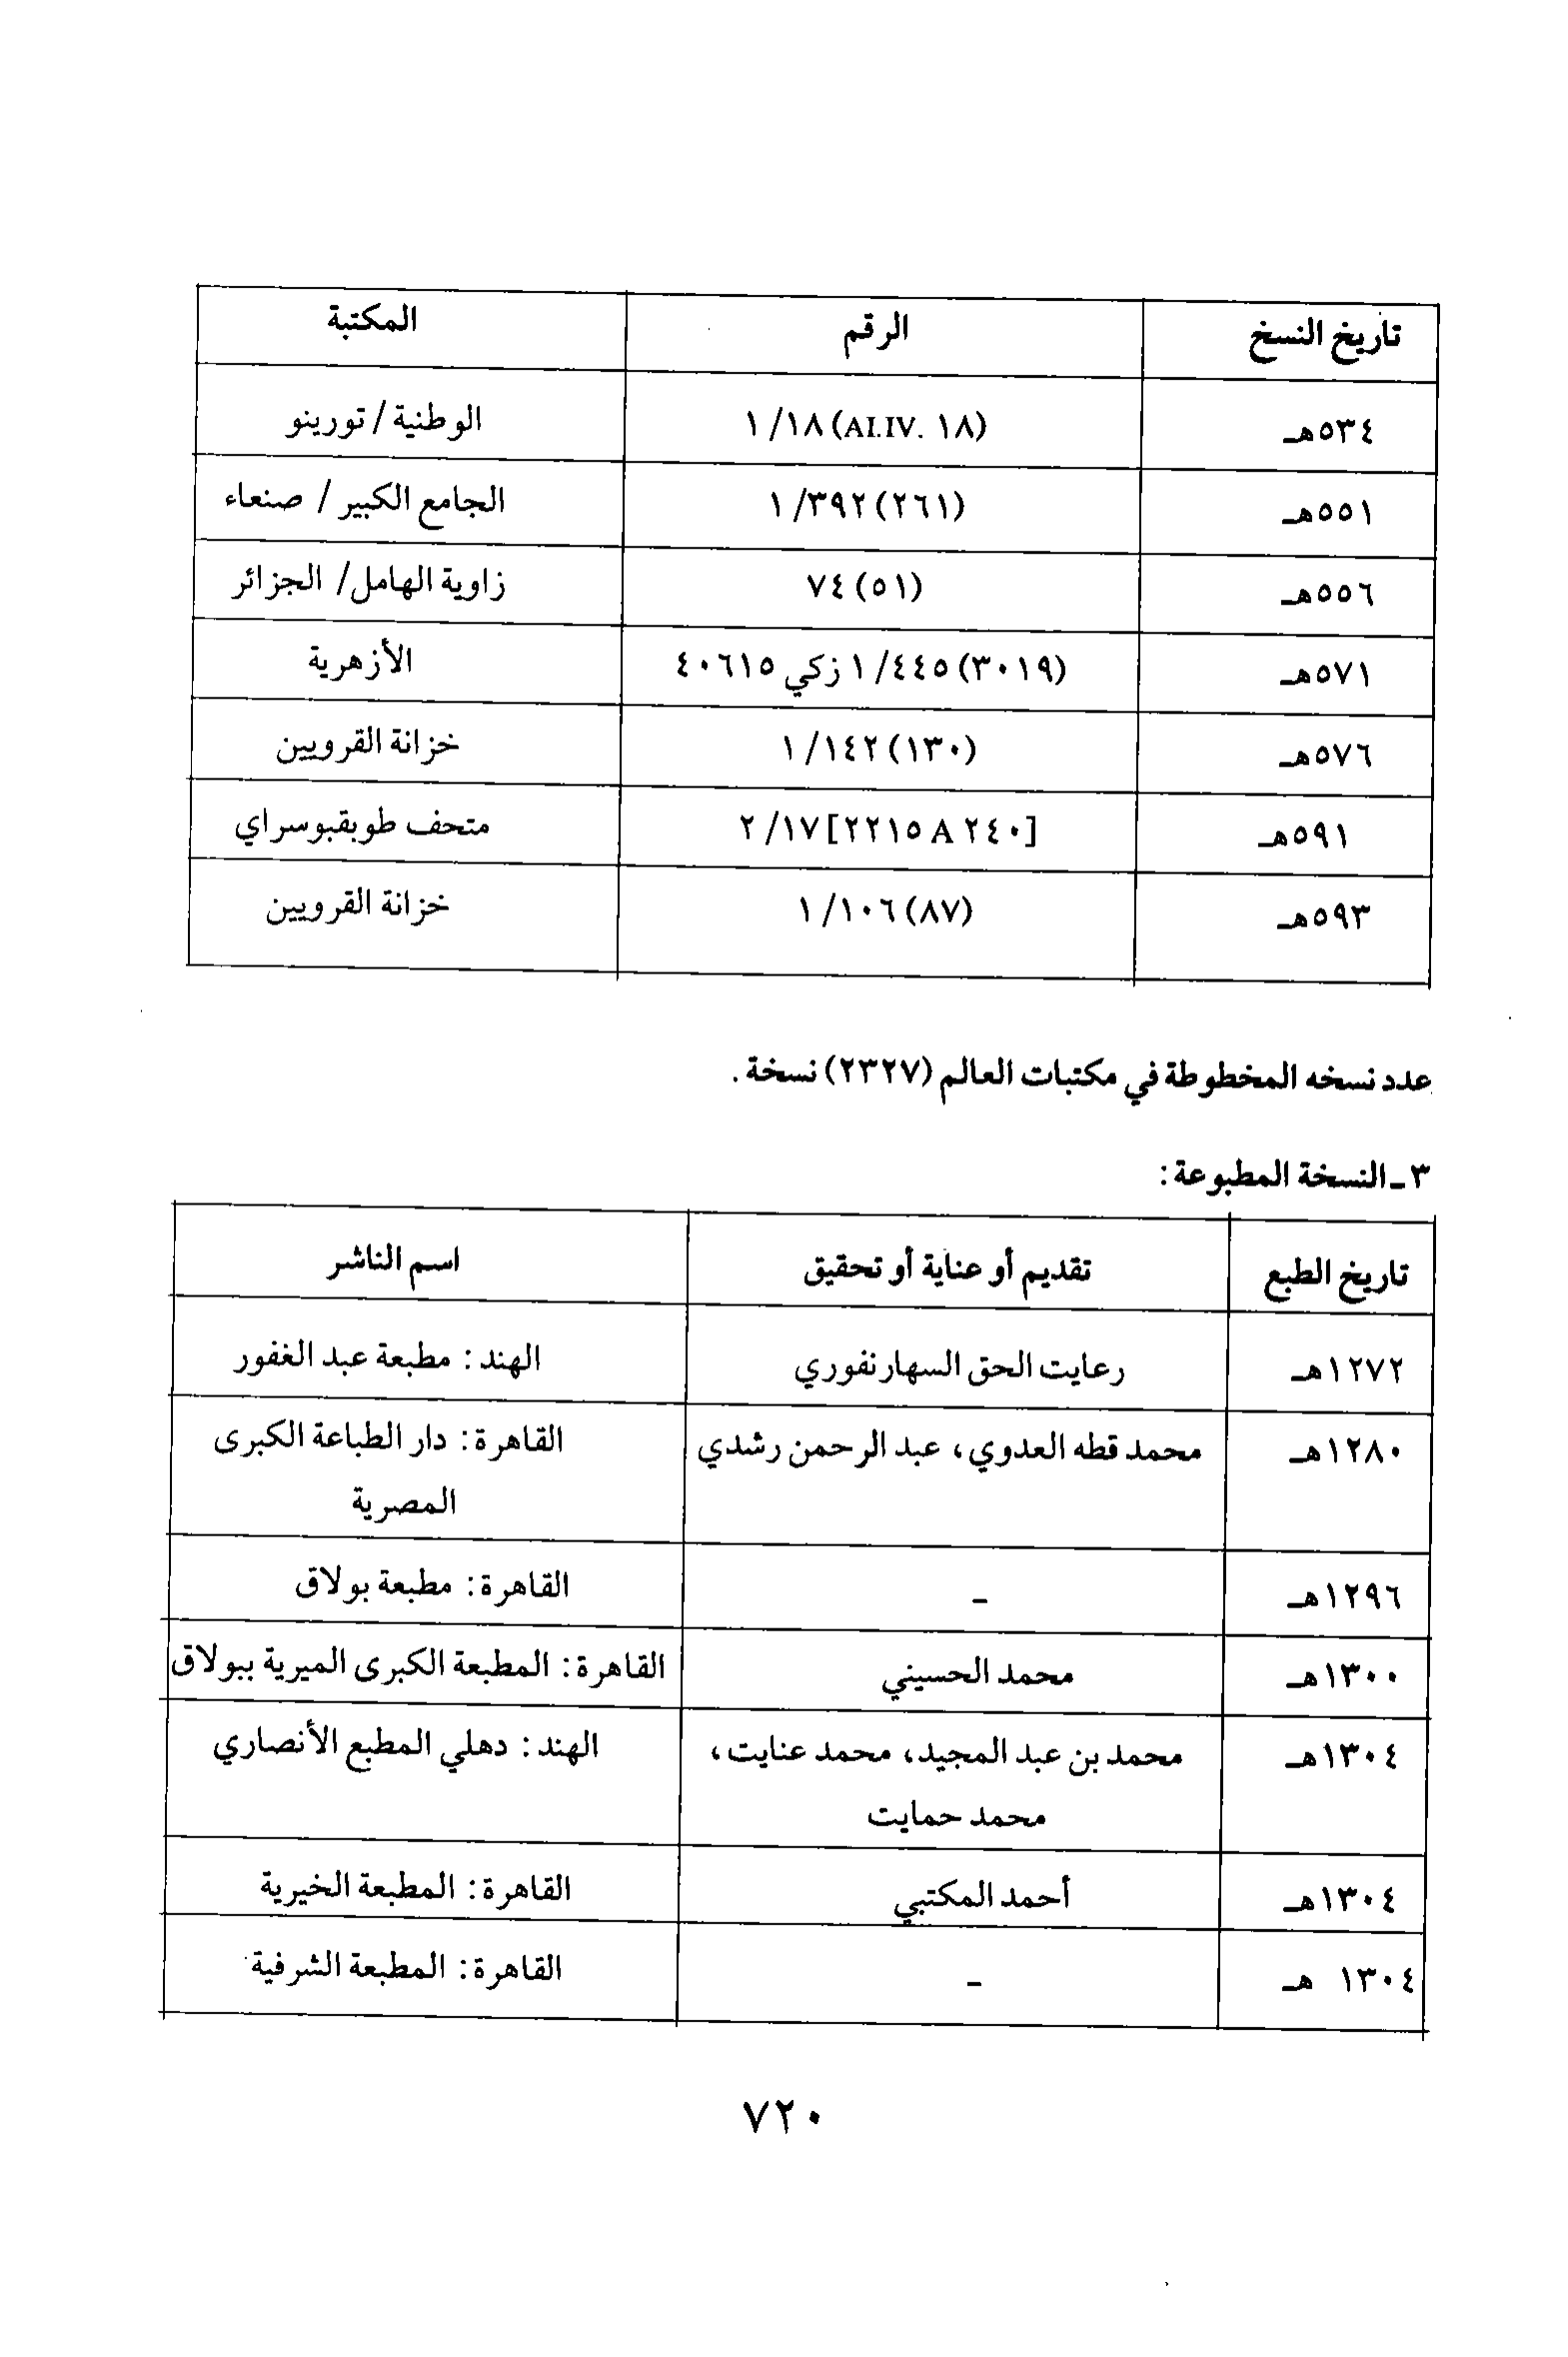 تاريخ النسخ الرقم المكتبة
٥٣٤هـ ١/١٨ (AI.IV. ١٨) الوطنية / تورينو
٥٥١هـ ١/٣٩٢ (٢٦١) الجامع الكبير / صنعاء
٥٥٦هـ ٧٤ (٥١) زاوية الهامل/ الجزائر
٥٧١هـ (٣٠١٩) ١/٤٤٥ زكي ٤٠٦١٥ الأزهرية
٥٧٦هـ ١/١٤٢ (١٣٠) خزانة القرويين
٥٩١هـ ٢/١٧ [٢٢١٥ A ٢٤٠] متحف طوبقبوسراي
٥٩٣هـ ١/١٠٦ (٨٧) خزانة القرويين
عدد نسخه المخطوطة في مكتبات العالم (٢٣٢٧) نسخة.
٣ ـ النسخة المطبوعة:
تاريخ الطبع تقديم أو عناية أو تحقيق اسم الناشر
١٢٧٢هـ رعايت الحق السهارنفوري الهند: مطبعة عبد الغفور
١٢٨٠هـ محمد قطه العدوي، عبد الرحمن رشدي القاهرة: دار الطباعة الكبرى
المصرية
١٢٩٦هـ - القاهرة: مطبعة بولاق
١٣٠٠هـ محمد الحسيني القاهرة: المطبعة الكبرى الميرية ببولاق
١٣٠٤هـ محمد بن عبد المجيد، محمد عنايت، الهند: دهلي المطبع الأنصاري
محمد حمايت
١٣٠٤هـ أحمد المكتبي القاهرة: المطبعة الخيرية
١٣٠٤ هـ - القاهرة: المطبعة الشرفية
٧٢٠